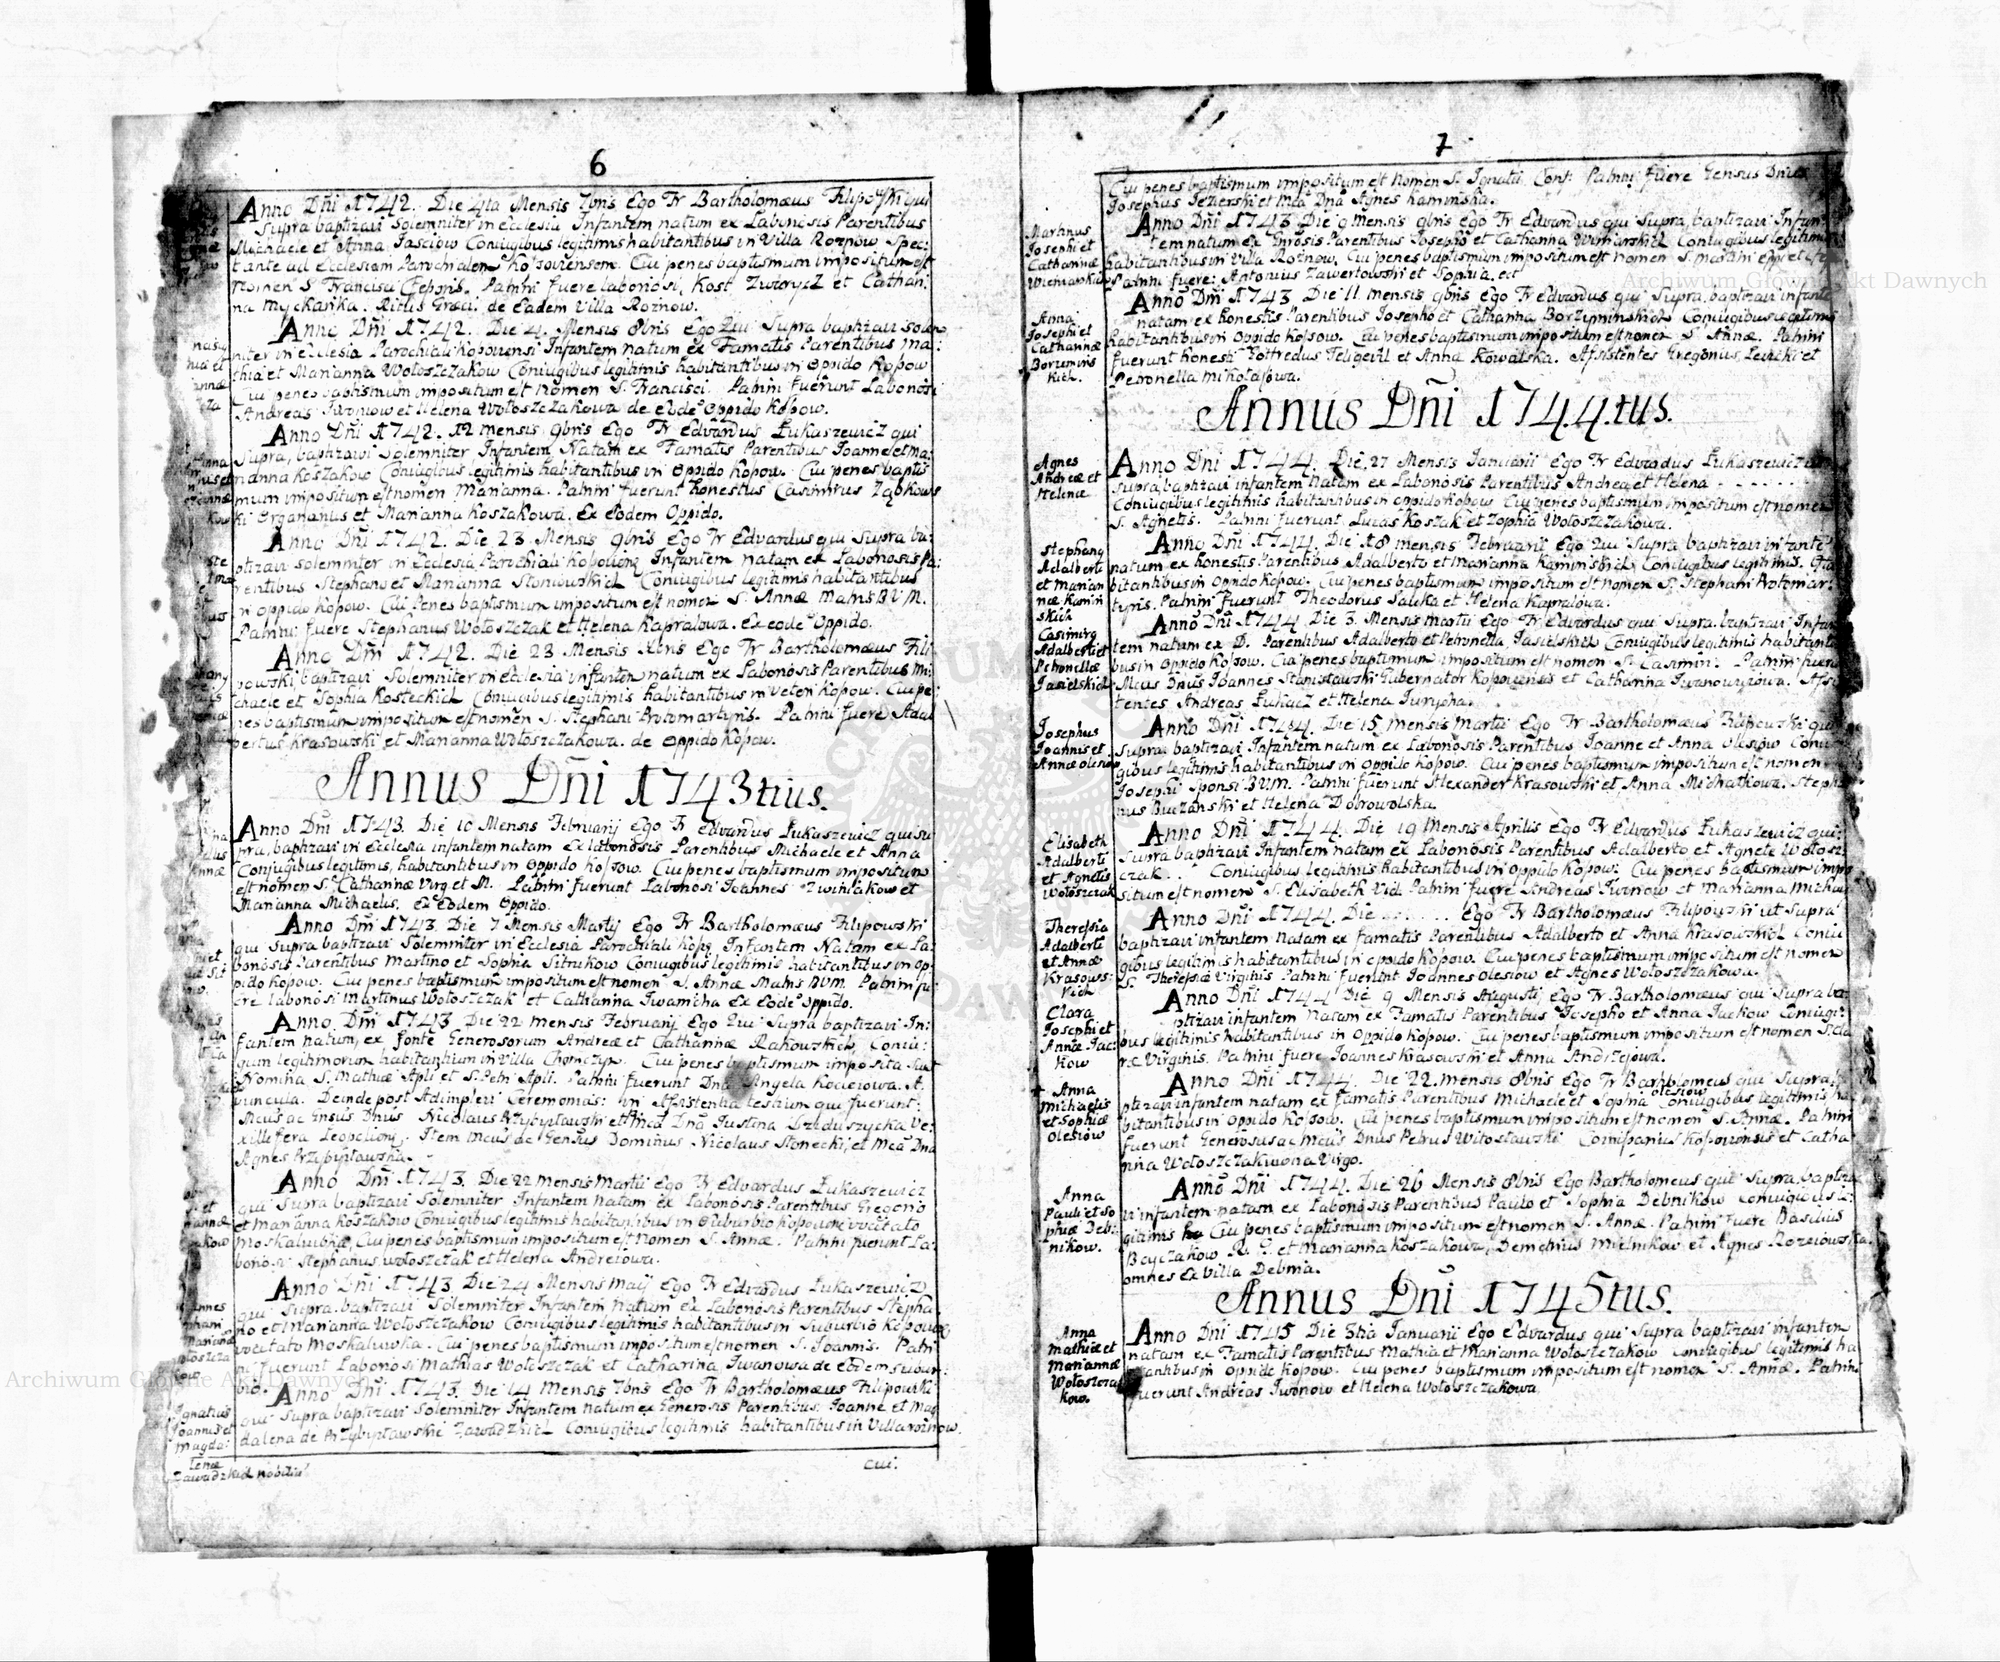 6
Anno Dñi 1742. Die 4ta Mensis 7bris Ego Fr Bartholomæus Filipowski qui
Supra baptizavi Solemniter in Ecclesia Infantem natum ex Laboriosis Parentibus
Machaele et Anna Jasciow Coniugibus legitimis habitantibus in Villa Roznow Spec:
tante ad Ecclesiam Parochialem Kossoviensem. Cui penes baptismum impositum est
nomen S Francisci Cefioris. Patrini fuere laboriosi, Kost Zworycz et Cathari:
na Myckańka. Ritus Græci de Eadem Villa Roznow.
Anno Dñi 1742. Die 4. Mensis 8bris Ego Qui Supra baptizavi Solem
niter in Ecclesia Parochiali Kossoviensi Infantem natum ex Famatis Parentibus Ma:
thia et Marianna Wołoszczakow Coniugibus legitimis habitantibus in Oppido Kossow
Cui penes baptismum impositum est nomen S. Francisci. Patrini fuerunt Laboriosi
Andreas Iwoniow et Helena Wołoszczakowa de eodẽ Oppido Kossow.
Anno Dñi 1742. 12 Mensis 9bris Ego Fr Edvardus Łukaszewicz qui
Supra, baptizavi Solemniter Infantem Natam ex Famatis Parentibus Joanne et Ma:
rianna Koszakow Coniugibus legitimis habitantibus in Oppido Kossow. Cui penes baptis
mum impositum est nomen Marianna. Patrini fuerunt honestus Casimirus Ząbkows
ki Organarius et Marianna Koszakowa. Ex Eodem Oppido.
Anno Dñi 1742. Die 23. Mensis 9bris Ego Fr Edvardus qui Supra ba:
ptizavi solemniter in Ecclesia Parochiali Infantem natam ex Laboriosis Pa:
rentibus Stephano et Marianna Coniugibus legitimis habitantibus
in oppido Kossow. Cui penes baptismum impositum est nomen S. Annæ Matris B.V.M.
Patrini fuere Stephanus Wołoszczak et Helena Kapralowa. Ex eodẽ Oppido.
Anno Dñi 1742. Die 23 Mensis Xbris Ego Fr Bartholomæus Fili
powski baptizavi Solemniter in Ecclesia infantem natum ex Laboriosis Parentibus Mi:
chaele et Sophia Kosteckich Coniugibus legitimis habitantibus in Veteri Kossow. Cui pe:
nes baptismum impositum est nomen S. Stephani Protomartyris. Patrini fuere Adal
bertus Krasowski et Marianna Wołoszczakowa. de Oppido Kossow.
Annus Dñi 1743tius.
Anno Dñi 1743. Die 10 Mensis Februarij Ego Fr Edvardus Łukaszewicz qui su
pra, baptizavi in Ecclesia infantem natam Ex laboriosis Parentibus Michaele et Anna
Coniugibus legitimis, habitantibus in Oppido Kossow. Cui penes baptismum impositum
est nomen S. Catharinæ Virg et M. Patrini fuerunt Laboriosi Joannes Zwinlakow et
Marianna Michaelis. Ex Eodem Oppido.
Anno Dñi 1743. Die 7 Mensis Martij Ego Fr Bartholomæus Filipowski
qui Supra baptizavi Solemniter in Ecclesia Parochiali Infantem Natam ex La:
boriosis Parentibus Martino et Sophia Sitnikow Coniugibus legitimis habitantibus in Op
pido Kossow. Cui penes baptismum impositum est nomen S. Annæ Matris BVM. Patrini fu:
ere laboriosi Martinus Wołoszczak et Catharina Iwanicha Ex Eodẽ Oppido.
Anno Dñi 1743 Die 22 mensis Februarij Ego Qui Supra baptizavi In:
fantem natum, ex fonte Generosorum Andreæ et Catharinæ Rakowskich, Coniu:
gum legitimorum habitantium in Villa Chomczyn. Cui penes baptismum imposita sunt
Nomina S. Mathiæ Apli et S. Petri Apli. Patrini fuerunt Dna Angela Kocierowa. A.
vincula. Deinde post Adimpleri Ceremonias: in Assistentia testium qui fuerunt:
Mcus ac Gnsus Dnus Nicolaus Przybysławski et Mca Dna Justina Dzieduszycka Ve:
xillifera. Item Mcus ac Gensus Dominus Nicolaus Słonecki, et Mca Dna
Agnes Przybysławska.
Anno Dñi 1743. Die 22 mensis Martii Ego Fr Edvardus Łukaszewicz
qui Supra baptizavi Solemniter Infantem Natam ex Laboriosis Parentibus Gregorio
et Marianna Koszakow Coniugibus legitimis habitantibus in Suburbio vocitato
Moskaluwka, Cui penes baptismum impositum est nomen S. Annæ. Patrini fuerunt La:
boriosi Stephanus Wołoszczak et Helena Andreiowa.
Anno Dñi 1743 Die 24 Mensis Maij Ego Fr Edvardus Łukaszewicz
qui Supra baptizavi Solemniter Infantem natum ex Laboriosis Parentibus Stepha.
no et Marianna Wołoszczakow Coniugibus legitimis habitantibus in Suburbio
vocitato Moskaluwka. Cui penes baptismum impositum est nomen S. Joannis. Patri
ni fuerunt Laboriosi Mathias Wołoszczak et Catharina Iwanowa de Eodem Subur:
bio.
Anno Dñi 1743. Die 14 Mensis 7bris Ego Fr Bartholomæus Filipowski
qui Supra baptizavi Solemniter Infantem natum ex Generosis Parentibus. Joanne et Mag
dalena de Przybysławskie Zawadzkich Coniugibus legitimis habitantibus in Villa Roznow.
cui.
Ignatius
Joannis et
Magda:
lenæ
Zawadzkich nobiliũ
7
Cui penes baptismum impositum est nomen S. Ignatii Conf. Patrini fuere Gensus Dnus
Josephus Jezierski et Mca Dna Agnes Kaminska.
Martinus
Josephi et
Catharinæ
Winiarskich
Anno Dñi 1743 Die 9 Mensis 9bris Ego Fr Edvardus qui Supra, baptizavi Infan
tem natum Ex Gnrosis Parentibus Josepho et Catharina Winiarskich Coniugibus legitimis
habitantibus in Villa Roznow. Cui penes baptismum impositum est nomen S. Martini
Patrini fuere: Antonius Zawertowski et Sophia. etc
Anna
Josephi et
Catharinæ
Borzemins
kich.
Anno Dñi 1743 Die 11. mensis 9bris Ego Fr Edvardus qui Supra, baptizavi infantẽ
natam ex honestis Parentibus Josepho et Catharina Borzyminskich Coniugibus legitimis
habitantibus in Oppido Kossow. Cui penes baptismum impositum est nomen S. Annæ. Patrini
fuerunt honesti Gotfredus et Anna Kowalska. Assistentes Gregorius Lewicki et
Petronella Mikołajowa.
Annus Dñi 1744.tus.
Agnes
Andreæ et
Helenæ
Anno Dñi 1744. Die 27 Mensis Januarii Ego Fr Edvardus Łukaszewicz
supra, baptizavi infantem natam ex Laboriosis Parentibus Andrea et Helena . . . . .
Coniugibus legitimis habitantibus in oppido Kossow. Cui penes baptismum impositum est nomen
S. Agnetis. Patrini fuerunt Lucas Koszak et Zophia Wołoszczakowa.
Stephany
Adalberti
et Marian
næ Kamin
skich
Anno Dñi 1744. Die 18 mensis Februarii Ego Qui Supra baptizavi infantẽ
natum ex honestis Parentibus Adalberto et Marianna Kaminskich Coniugibus legitimis. Ha
bitantibus in Oppido Kossow. Cui penes baptismum impositum est nomen S. Stephani Protomar:
tyris. Patrini fuerunt Theodorus Sałuka et Helena Kapralowa.
Casimirg
Adalberti et
Petronellæ
Jasielskich
Anno Dñi 1744. Die 3. Mensis Martii Ego Fr Edvardus qui Supra baptizavi Infan
tem natum ex D. Parentibus Adalberto et Petronella Jasielskich Coniugibus legitimis habitanti
bus in Oppido Kossow. Cui penes baptismum impositum est nomen S. Casimiri. Patrini fuere
Mcus Dnus Joannes Stanisławski Gubernator Kossoviensis et Catharina Assis
tentes Andreas Łukacz et Helena Jurycha.
Josephus
Joannis et
Annæ Olesiow
Anno Dñi 1744. Die 15 Mensis Martii Ego Fr Bartholomæus Filipowski qui
Supra baptizavi Infantem natum ex Laboriosis Parentibus Joanne et Anna Olesiow Coniu
gibus legitimis habitantibus in Oppido Kossow. Cui penes baptismum impositum est nomen
Josephi Sponsi BVM. Patrini fuerunt Alexander Krasowski et Anna Michałkowa. Stepha
nus Buczanski et Helena Dobrowolska.
Elisabeth
Adalberti
et Agnetis
Wołoszczak
Anno Dñi 1744. Die 19 Mensis Aprilis Ego Fr Edvardus Łukaszewicz qui
Supra baptizavi Infantem natam ex Laboriosis Parentibus Adalberto et Agnete Wołosz
czak . . Coniugibus legitimis habitantibus in Oppido Kossow. Cui penes baptismum impo
situm est nomen S. Elisabeth Vid. Patrini fuere Andreas Iwniow et Marianna
Theressia
Adalberti
et Annæ
Krasows:
kich
Anno Dñi 1744. Die . . . . . . Ego Fr Bartholomæus Filipowski ut Supra
baptizavi infantem natam ex famatis Parentibus Adalberto et Anna Krasowskich Coniu
gibus legitimis habitantibus in oppido Kossow. Cui penes baptismum impositum est nomen
S. Theresiæ Virginis Patrini fuerunt Joannes Olesiow et Agnes Wołoszczakowa.
Clara
Josephi et
Annæ Jac:
kow
Anno Dñi 1744 Die 9 Mensis Augusti Ego Fr Bartholomæus qui Supra ba
ptizavi infantem Natam ex Famatis Parentibus Josepho et Anna Jackow Coniugi:
bus legitimis habitantibus in Oppido Kossow. Cui penes baptismum impositum est nomen S. Cla
ræ Virginis. Patrini fuere Joannes Krasowski et Anna Andrzejowa.
+ Anna
Michaelis
et Sophiæ
Olesiow
Anno Dñi 1744. Die 22. mensis 8bris Ego Fr Bartholomeus qui Supra ba
ptizavi infantem natam ex famatis Parentibus Michaele et Sophia Olesiow Coniugibus legitimis, ha
bitantibus in Oppido Kossow. Cui penes baptismum impositum est nomen S. Annæ. Patrini
fuerunt Generosus ac Mcus Dnus Petrus Witosławski Kossoviensis et Catha
rina Wołoszczakowna Virgo.
Anna
Pauli et So
phiæ Deb:
nikow.
Anno Dñi 1744. Die 26 Mensis 8bris Ego Bartholomeus qui Supra, baptiza
vi infantem natam ex Laboriosis Parentibus Paulo et Sophia Debnikow Coniugibus le:
gitimis Cui penes baptismum impositum est nomen S. Annæ. Patrini Fuere Basilius
Bayczakow R. G. et Marianna Koszakowa, Demetrius Mielnikow et Agnes
omnes Ex Villa Debnia.
Annus Dñi 1745tus.
Anna
Mathiæ et
Mariannæ
Wołoszcza
kow.
Anno Dñi 1745 Die 3tia Januarii Ego Edvardus qui Supra baptizavi infantem
natam ex Famatis Parentibus Mathia et Marianna Wołoszczakow Coniugibus legitimis ha
bitantibus in Oppido Kossow. Cui penes baptismum impositum est nomen S. Annæ. Patrini
fuerunt Andreas Iwonow et Helena Wołoszczakowa.
Archiwum Główne Akt Dawnych
Archiwum Główne Akt Dawnych